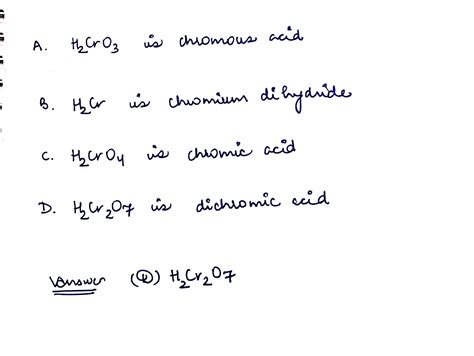 A. H₂CrO₃ is chromous acid
B. H₂Cr is chromium dihydride
C. H₂CrO₄ is chromic acid
D. H₂Cr₂O7 is dichromic acid
Answer (D) H₂Cr₂O7